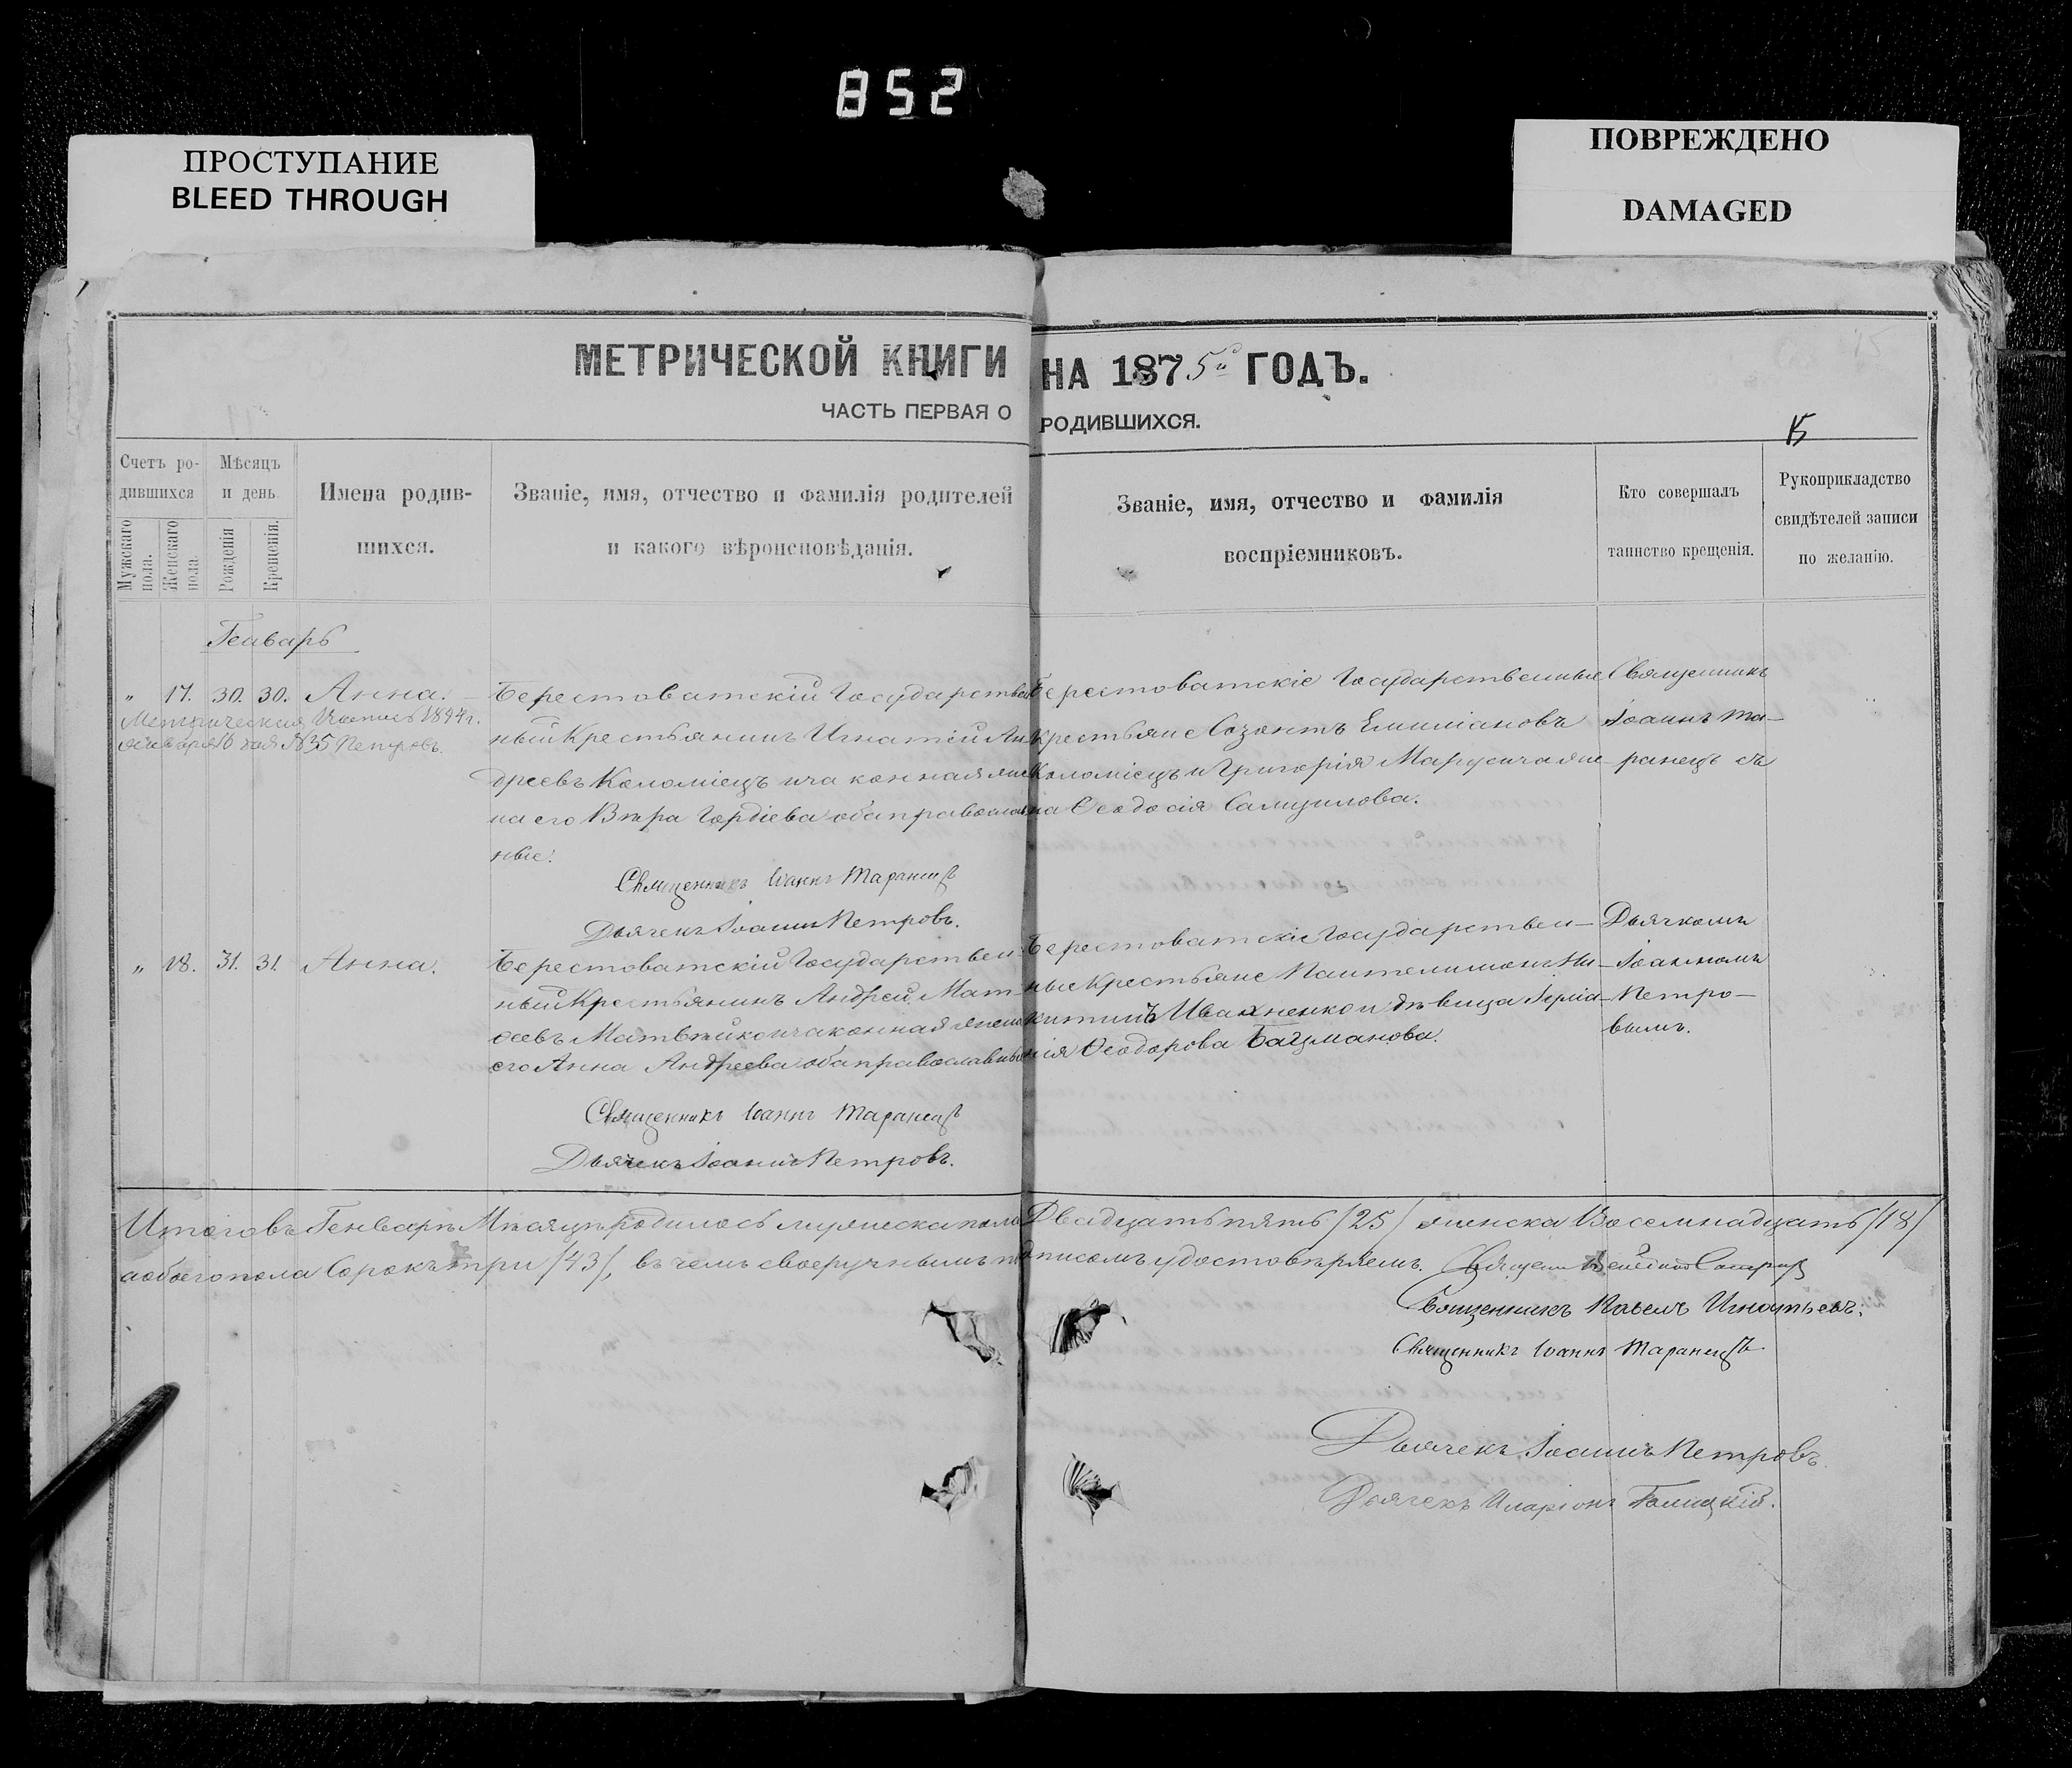 852
ПРОСТУПАНИЕ
BLEED THROUGH
ПОВРЕЖДЕНО
DAMAGED
МЕТРИЧЕСКОЙ КНИГИ НА 1875й ГОДЪ.
ЧАСТЬ ПЕРВАЯ О РОДИВШИХСЯ.
15
Счетъ ро-
дившихся
Мужскаго пола.
Женскаго пола.
Мѣсяцъ
и день
Рожденія
Крещенія.
Имена родив-
шихся.
Званіе, имя, отчество и фамилія родителей
и какого вѣроисповѣданія.
Званіе, имя, отчество и фамилія
воспріемниковъ.
Кто совершалъ
таинство крещенія.
Рукоприкладство
свидѣтелей записи
по желанію.
Генварь
„ 17. 30. 30. Анна.
1894г.
№35 Петровъ.
Берестоватскій Государствен
ный Крестьянинъ Игнатій Ан-
дреевъ Коломіецъ и законная жен
на его Вѣра Гордіева оба православ
ные.
Священникъ Іоаннъ Таранецъ
Дьячекъ Іоаннъ Петровъ.
Берестоватскіе Государственные
Крестьяне Созонтъ Емиліановъ
Коломіецъ и Григорія Марусича же
на Ѳеодосія Самуилова.
Священникъ
Іоаннъ Та-
ранецъ
„ 18. 31. 31. Анна.
Берестоватскій Государствен-
ный Крестьянинъ Андрей Мат-
ѳеевъ Матвѣйко и законная жена
его Анна Андреева оба православны
Священникъ Іоаннъ Таранецъ
Дьячекъ Іоаннъ Петровъ.
Берестоватскіе Государствен-
ные Крестьяне Пантелимонъ Ни-
китинъ Ивахненко и дѣвица
Ѳеодорова Бацманова.
Дьячкомъ
Іоанномъ
Петро-
вымъ.
Итого въ Генварѣ Мѣсяцѣ родилось мужеска пола Двадцать пять /25/ женска Восемнадцать /18/
а обоего пола Сорокъ три /43/, въ чемъ своеручнымъ подписомъ удостовѣряемъ.
Священникъ Павелъ Игнатьевъ.
Священникъ Іоаннъ Таранецъ
Дьячекъ Іоаннъ Петровъ.
Дьячекъ Иларіонъ Галицкій.